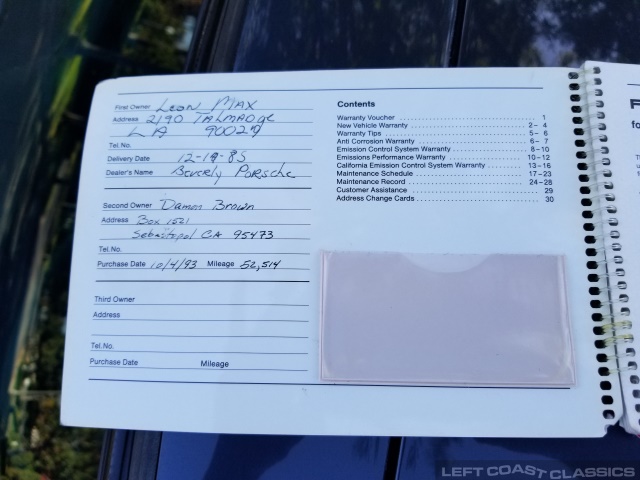 First Owner Leon Max
Address 2190 Talmadge
LA 90027
Tel.No.
Delivery Date 12-19-85
Dealer's Name Beverly Porsche
Second Owner Damon Brown
Address Box 1521
Sebastopol CA 95473
Tel.No.
Purchase Date 10/4/93 Mileage 52,514
Third Owner
Address
Tel.No.
Purchase Date Mileage
Contents
Warranty Voucher 1
New Vehicle Warranty 2- 4
Warranty Tips 5- 6
Anti Corrosion Warranty 6- 7
Emission Control System Warranty 8-10
Emissions Performance Warranty 10-12
California Emission Control System Warranty 13-16
Maintenance Schedule 17-23
Maintenance Record 24-28
Customer Assistance 29
Address Change Cards 30
fo
LEFT COAST CLASSICS